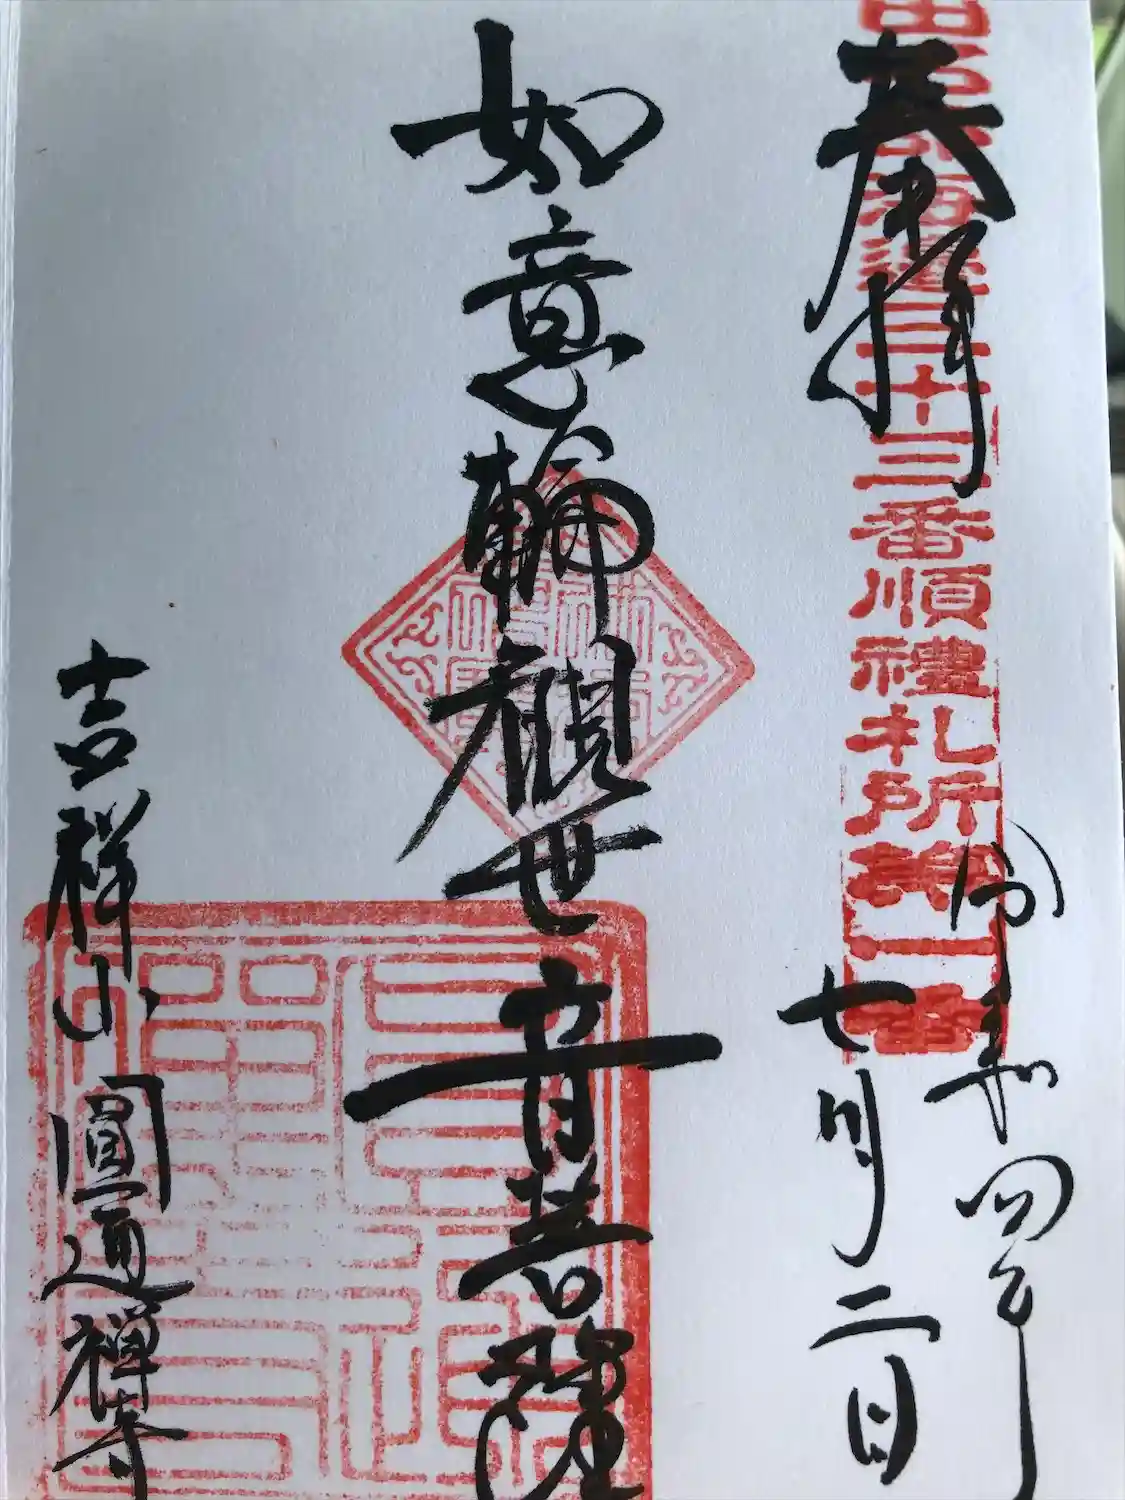 奉拝
田名部海邊三十三番順禮札所第一番
令和四年
七月二日
如意輪観世音菩薩
吉祥山圓通禅寺